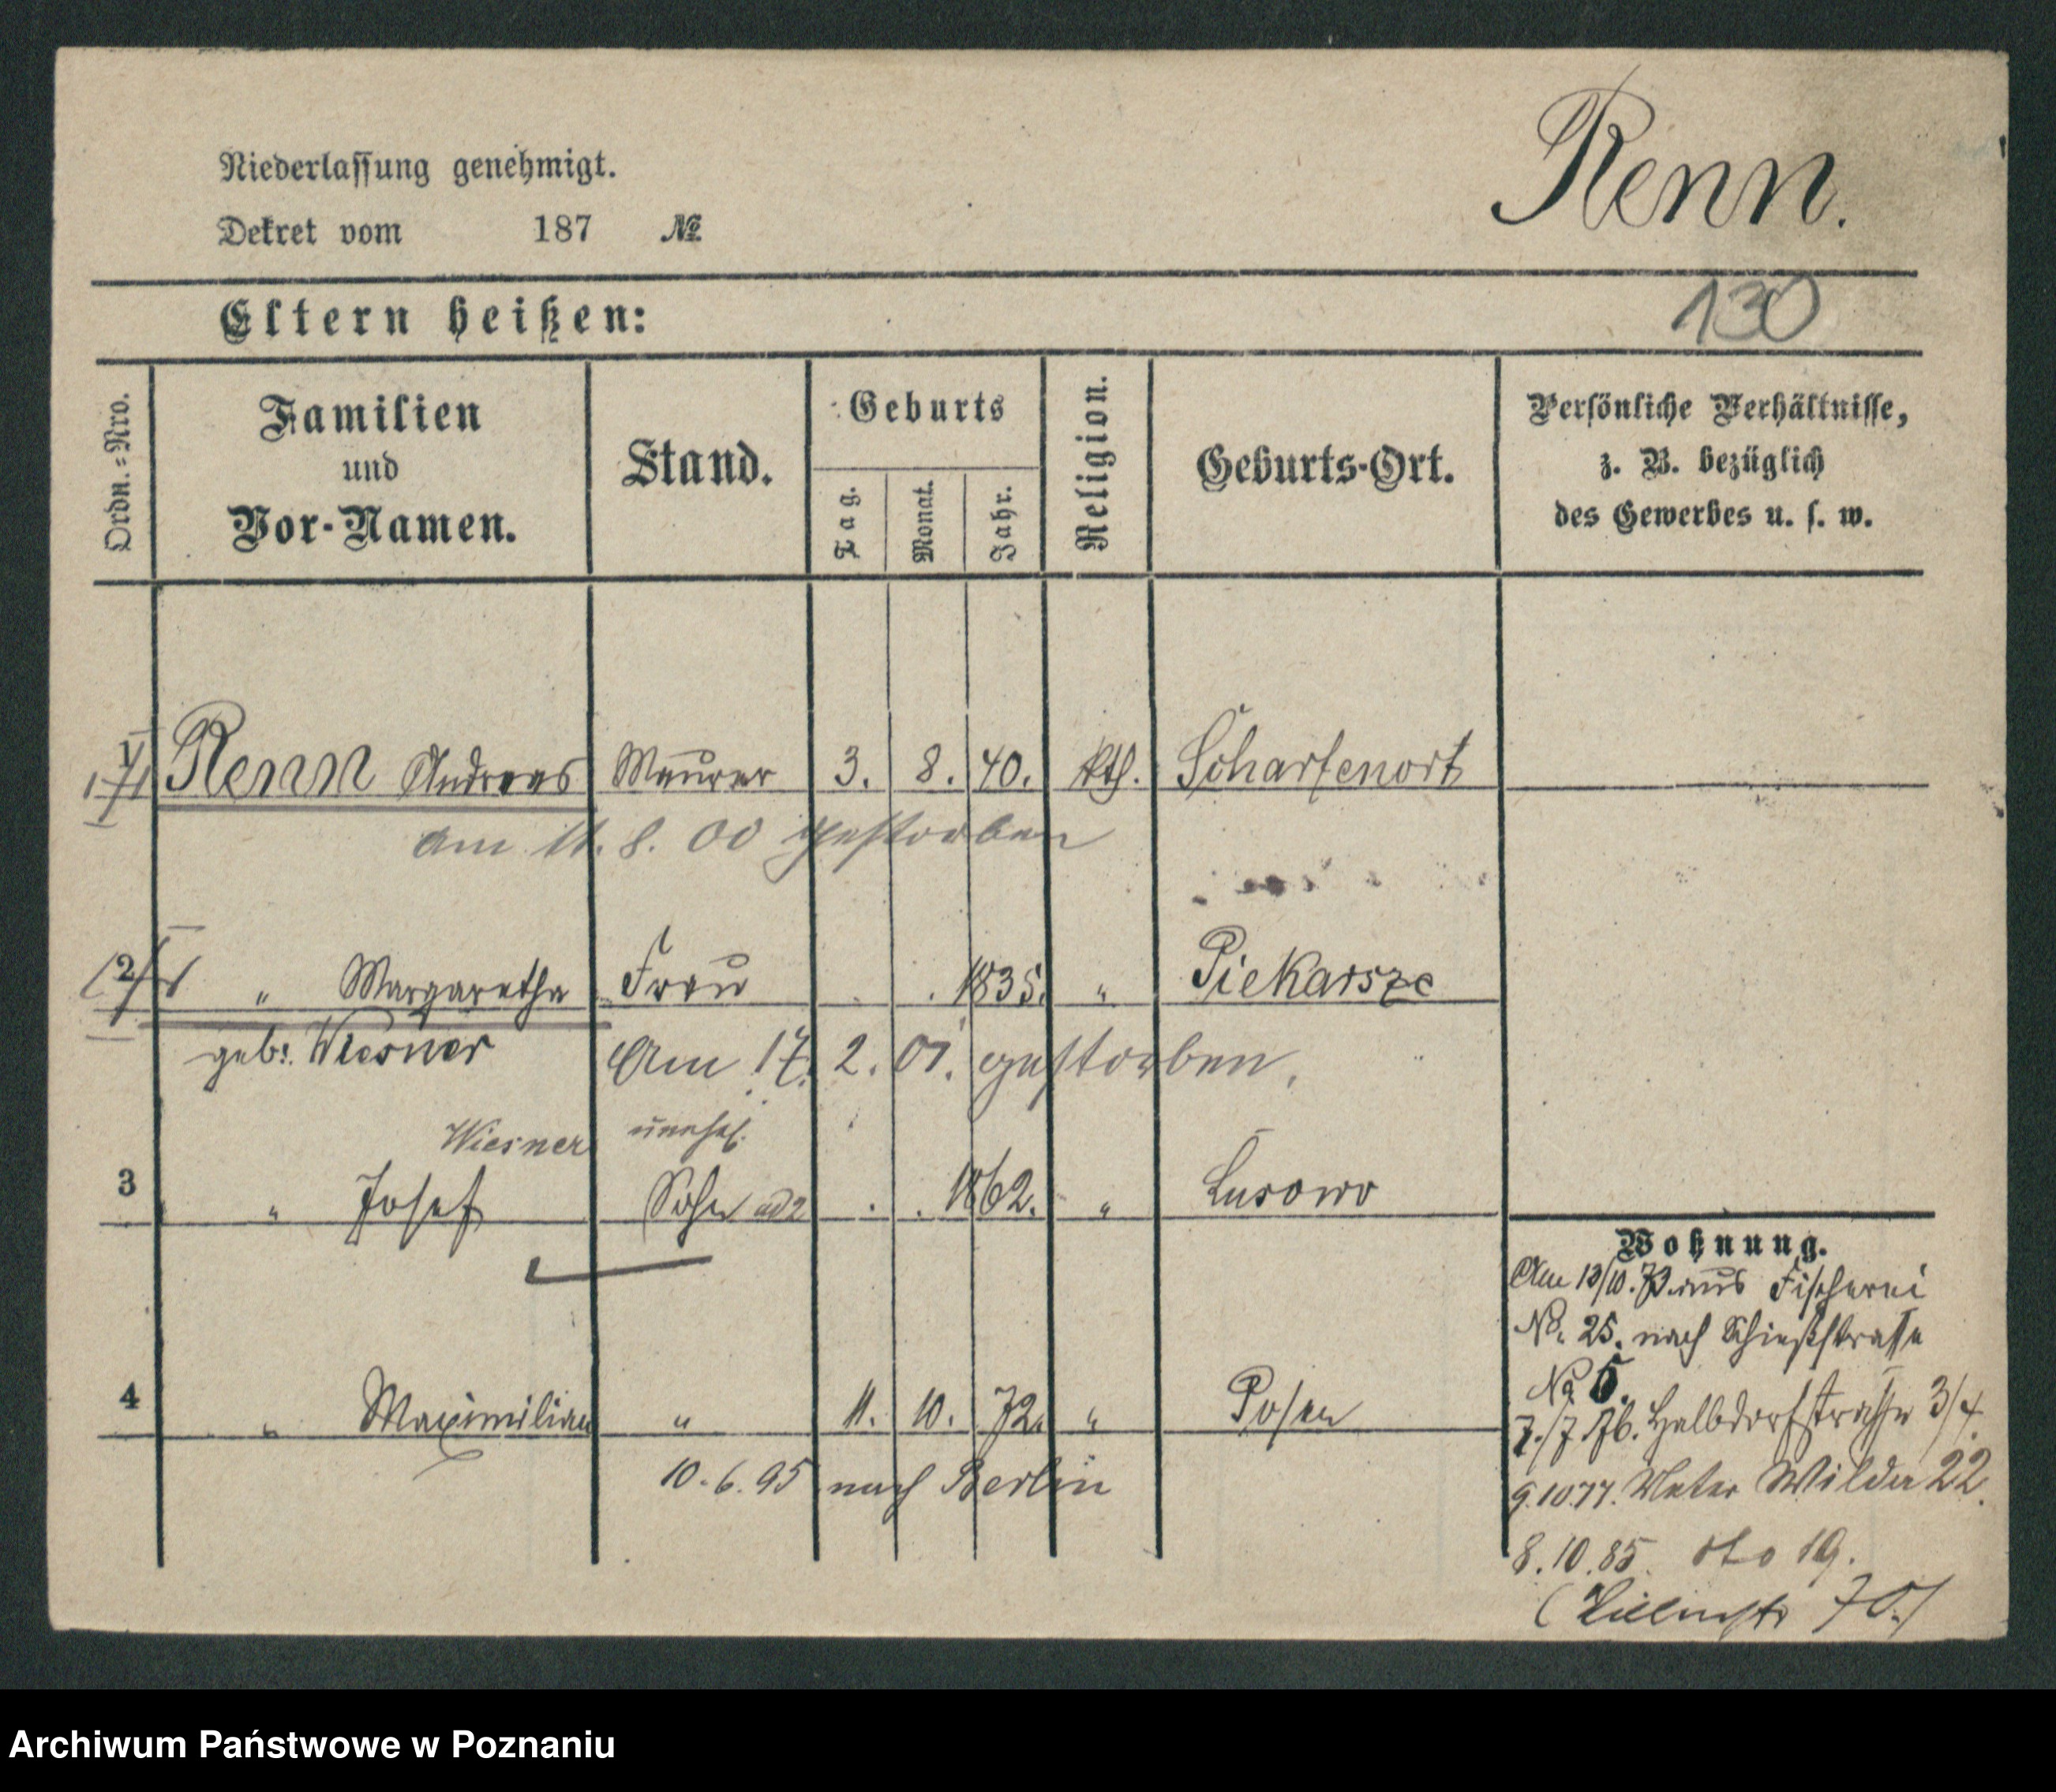 Niederlassung genehmigt.
Renn.
Dekret vom 187 №
Eltern heißen:
130
Ordn.=Nro.
Familien
und
Vor-Namen.
Stand.
Geburts
Tag.
Monat.
Jahr.
Religion.
Geburts-Ort.
Persönliche Verhältnisse,
z. B. bezüglich
des Gewerbes u. s. w.
1 Renn Andreas Maurer 3. 8. 40. kth. Scharfenort
am 11. 8. 00 gestorben
2 " Margaretha Frau 1835. " Piekarsze
geb: Wiesner Am 17. 2. 01. gestorben.
Wiesner unehel.
3 " Josef Sohn ad 2 1862. " Lusowo
4 " Maximilian " 11. 10. 72. " Posen
10. 6. 95 nach Berlin
Wohnung.
Am 13/10. 73. aus Fischerei
No. 25. nach Schießstrasse
No 5.
7./7 76. Halbdorfstrasse 3/4.
9.10 77. Unter Wilda 22.
8. 10. 85. dto 19.
70.)
Archiwum Państwowe w Poznaniu